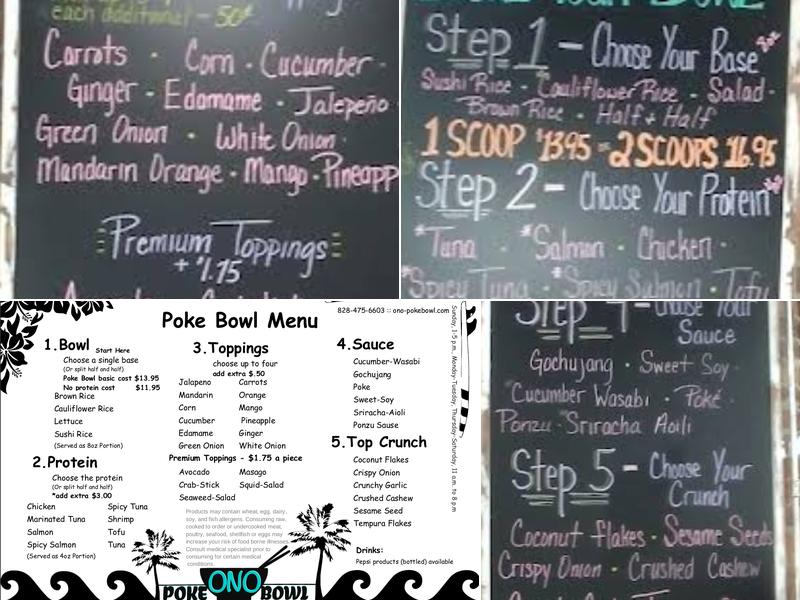 each additional - 50¢
Carrots · Corn · Cucumber ·
Ginger · Edamame · Jalepeño
Green Onion · White Onion ·
Mandarin Orange · Mango · Pineapp
Premium Toppings
+ $1.75
Step 1 - Choose Your Base
Sushi Rice · Cauliflower Rice · Salad ·
Brown Rice · Half + Half
1 SCOOP $13.95 - 2 SCOOPS 16.95
Step 2 - Choose Your Protein
*Tuna · *Salmon · Chicken ·
*Spicy Tuna · *Spicy Salmon · Tofu
828-475-6603 :: ono-pokebowl.com
Poke Bowl Menu
Sunday, 1-5 p.m., Monday-Tuesday, Thursday-Saturday, 11 a.m. to 8 p.m
1.Bowl Start Here
Choose a single base
(Or split half and half)
Poke Bowl basic cost $13.95
No protein cost $11.95
Brown Rice
Cauliflower Rice
Lettuce
Sushi Rice
(Served as 8oz Portion)
2.Protein
Choose the protein
(Or split half and half)
*add extra $3.00
Chicken Spicy Tuna
Marinated Tuna Shrimp
Salmon Tofu
Spicy Salmon Tuna
(Served as 4oz Portion)
3.Toppings
choose up to four
add extra $.50
Jalapeno Carrots
Mandarin Orange
Corn Mango
Cucumber Pineapple
Edamame Ginger
Green Onion White Onion
Premium Toppings - $1.75 a piece
Avocado Masago
Crab-Stick Squid-Salad
Seaweed-Salad
Products may contain wheat, egg, dairy,
soy, and fish allergens. Consuming raw,
cooked to order or undercooked meat,
poultry, seafood, shellfish or eggs may
increase your risk of food borne illnesses
Consult medical specialist prior to
consuming for certain medical
conditions.
4.Sauce
Cucumber-Wasabi
Gochujang
Poke
Sweet-Soy
Sriracha-Aioli
Ponzu Sause
5.Top Crunch
Coconut Flakes
Crispy Onion
Crunchy Garlic
Crushed Cashew
Sesame Seed
Tempura Flakes
Drinks:
Pepsi products (bottled) available
POKE ONO BOWL
Step 4 - Choose Your
Sauce
Gochujang · Sweet Soy ·
*Cucumber Wasabi · Poké ·
Ponzu · *Sriracha Aoili
Step 5 - Choose Your
Crunch
Coconut flakes · Sesame Seeds
Crispy Onion · Crushed Cashew